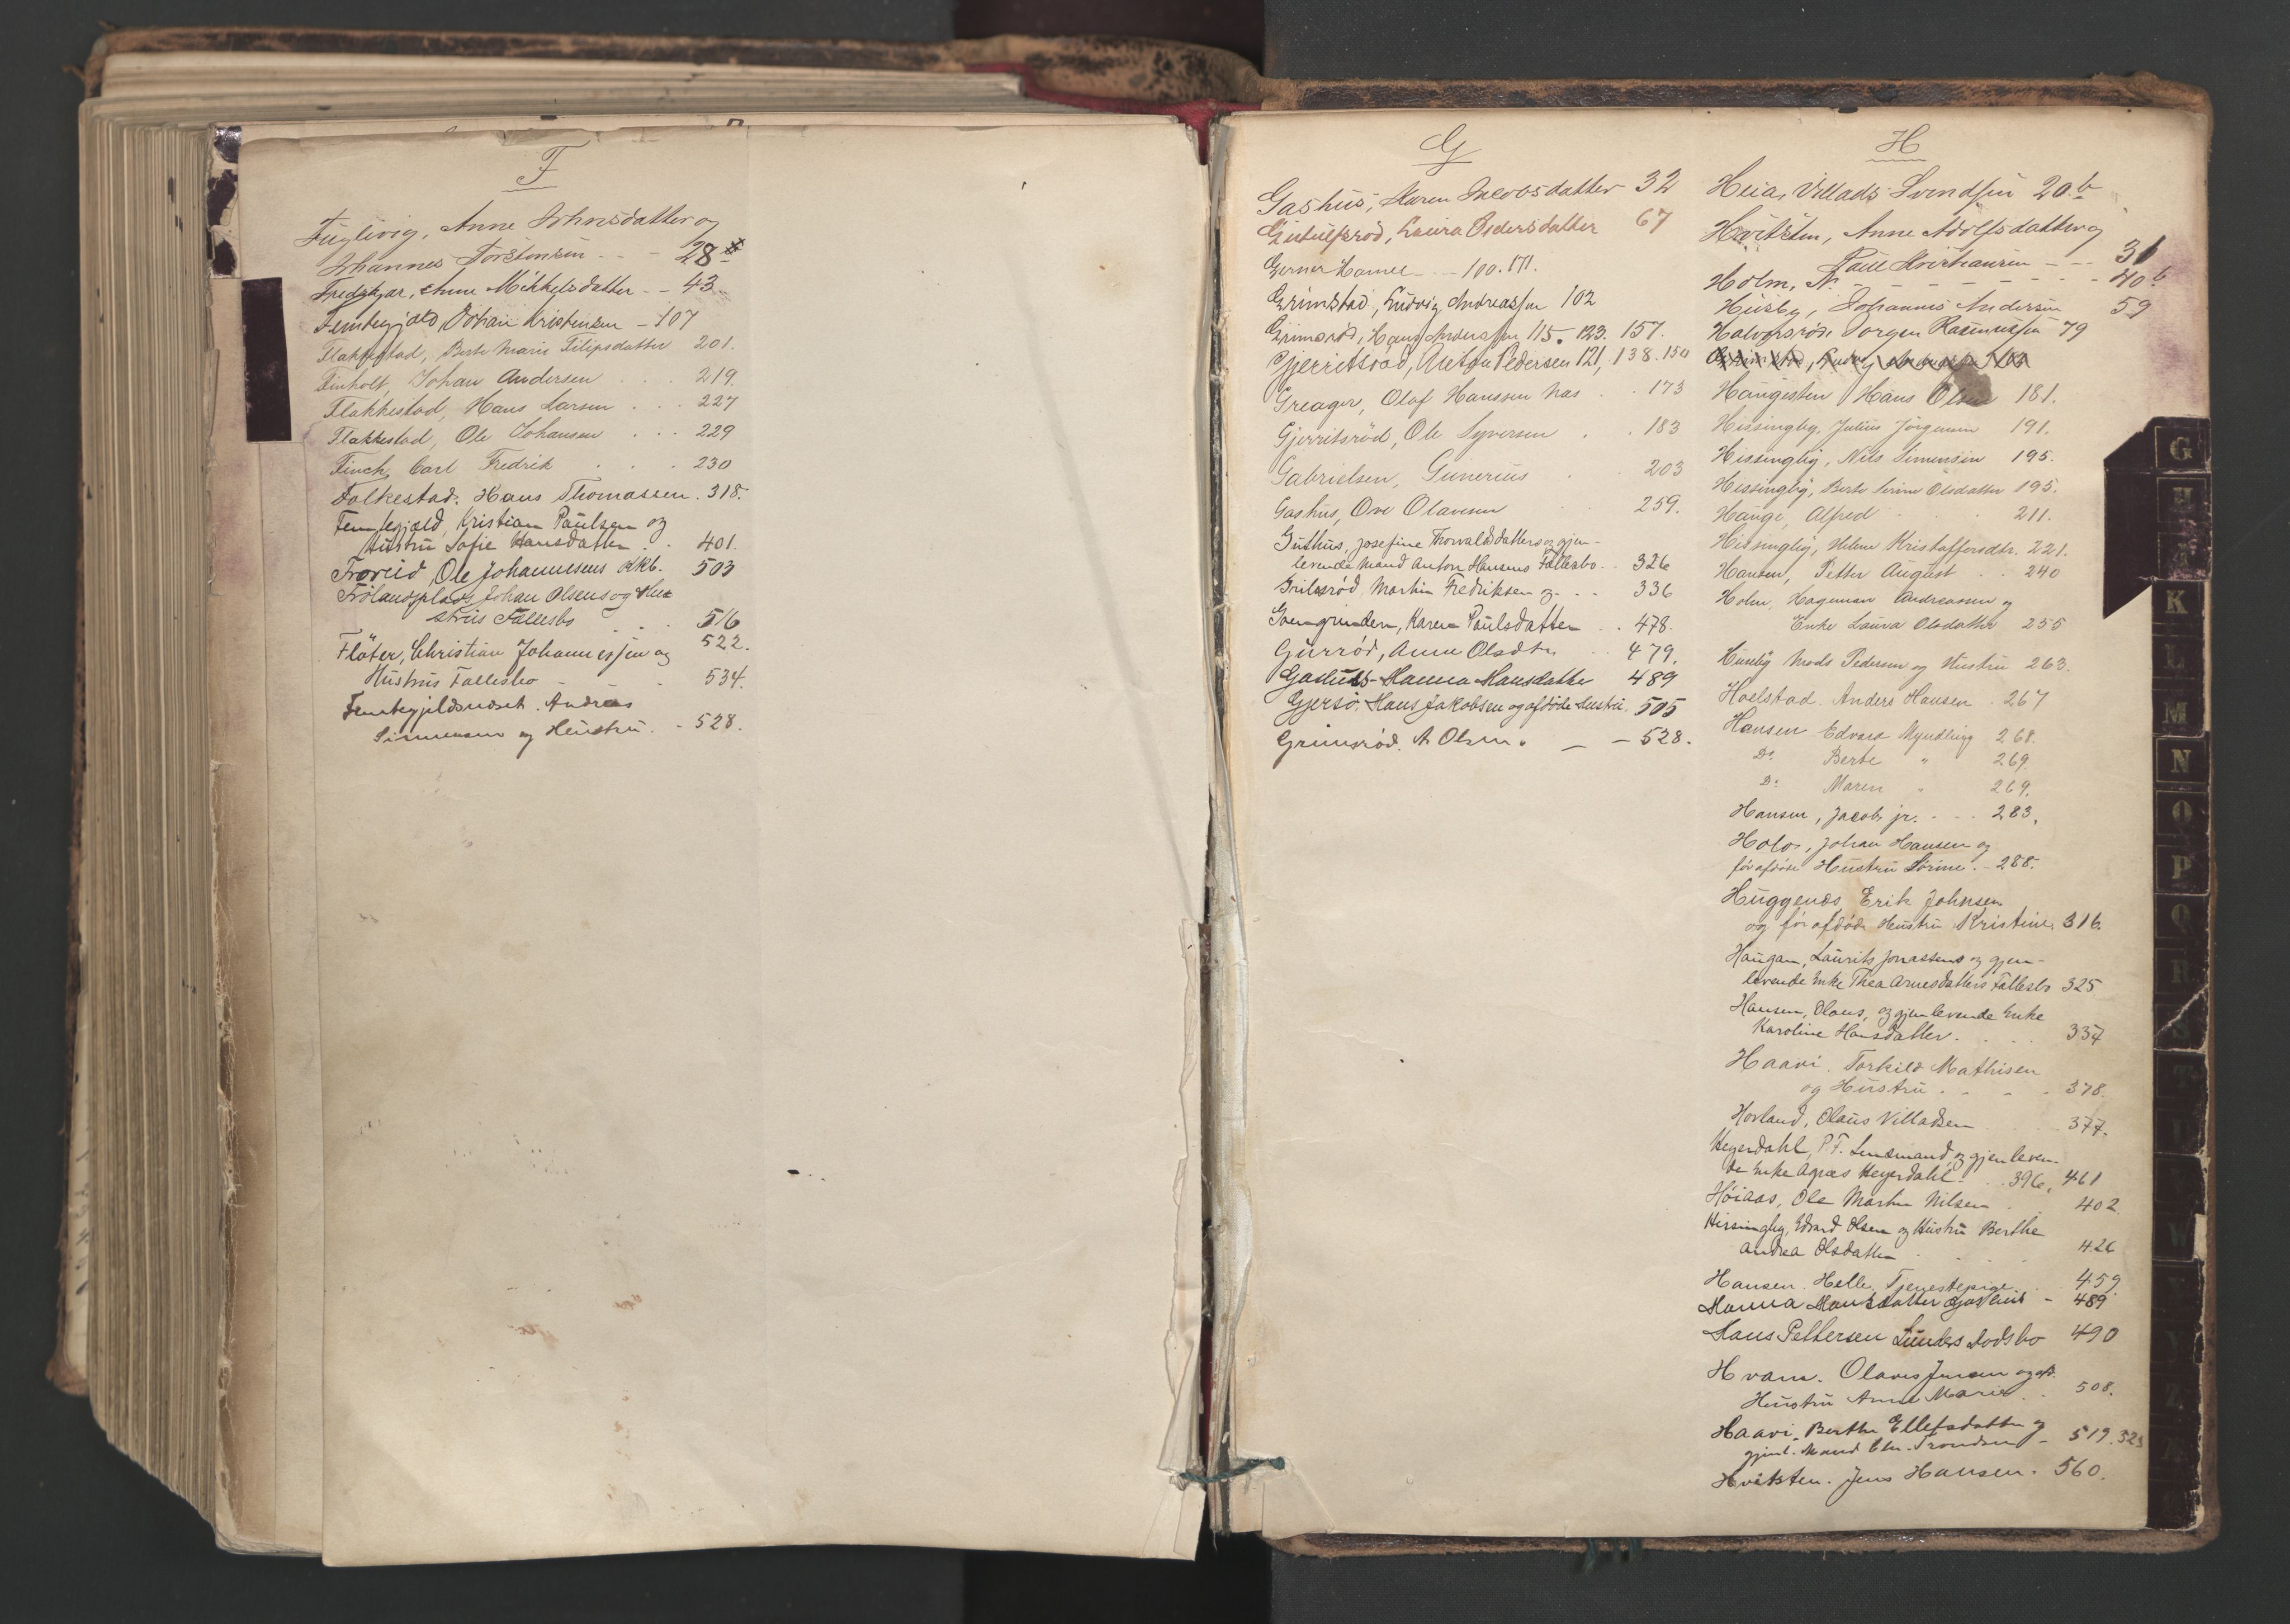 F
Fuglevig, Anne Johnsdatter og
Johannes Torstensen - - - 28
Fredskjær, Anne Mikkelsdatter - - 43
Femtegjeld, Johan Kristensen - 107
Flakkestad, Berte Marie Filipsdatter 201.
Finholt, Johan Andersen . . . 219.
Flakkestad, Hans Larsen . . . 227
Flakkestad, Ole Johansen . . . 229
Finch, Carl Fredrik . . . 230
Folkestad. Hans Thomassen . 318.
Femtegjeld, Kristian Paulsen og
Hustru Sofie Hansdatter . . 401.
Ole Johannesens 503
Frölandsplads Johan Olsens og Hu-
strus Fællesbo . . . 516
Flöter, Christian Johannessen og 522.
Hustrus Fællesbo - - - 534.
Andreas
Simensen og Hustru. - 528.
G
Gashus, Karen Jacobsdatter 32
Laura Pedersdatter 67
Gerner Hamel - - 100. 171.
Grimstad, Ludvig Andreassen 102
Grimsröd, Hans Andersen 115. 123. 157.
Gjerritsröd, Anton Pedersen 121, 138. 150
Greager, Olaf Hanssen Næs . . 173
Gjerritsröd, Ole Syversen . . 183
Gabrielsen, Gunerius . 203
Gashus, Ove Olavesen 259.
Guthus, Josefine Thorvaldsdatters og gjen-
levende Mand Anton Hansens Fællesbo . . 326
Martin Fredriksen og - - - 336
Karen Paulsdatter . . 478.
Gurröd, Anne Olsdtr. . . 479.
Gashus Hanna Hansdatter 489
Gjersö. Hans Jakobsen og afdöde Hustru. 505
Grimsröd. A Olsen. - - 528.
H
Heia, Villads Svendsen 20 b
Hvitsten, Anne Adolfsdatter og
Paul Kristiansen - - - 31
Holm, N. - - - - - - 40 b
Husby, Johannes Andersen 59
Halvorsröd, Jørgen Rasmussen 79
Haugesten Hans Olsen 181.
Hissingby, Julius Jörgensen 191.
Hissingby, Nils Simensen 195.
Hissingby, Berte Serine Olsdatter 195.
Hauge, Alfred . . . 211.
Hissingby, Helene Kristoffersdtr. 221.
Hansen, Petter August . . 240
Holm, Hageman Andreassen og
Enke Laura Olsdatter 255
Huseby Mads Pedersen og Hustru 263.
Hoelstad Anders Hansen . 267
Hansen Edvard Myndling 268.
Do Berte " 269.
Do Maren " 269.
Hansen, Jacob jr. - - - 283.
Holos, Johan Hansen og
förafdöde Hustru Sörine. - 288.
Huggenes, Erik Johnsen
og för afdöde Hustru Kristine. 316.
Haugan, Laurits Jonassens og gjen-
levende Enke Thea Arnesdatters Fællesbo 325
Hansen, Olaus, og gjenlevende Enke
Karoline Hansdatter. . . . 337
Haavi. Torkild Mathisen
og Hustru . - - - 378.
Hovland, Olaus Villadsen . . 377.
Heyerdahl, P. F. Lensmand, og gjenleven-
de Enke Agnes Heyerdahl - . . 396, 461
Höiaas, Ole Martin Nilsen . . 402
Hissingby, Edvard Olsen og Hustru Berthe
Andrea Olsdatter . . . 426
Hansen. Helle. Tjenestepige. . . 459.
Hanna Hansdatter Gashus - 489
Hans Pettersen Lunders Dødsbo 490
Hvam. Olaves Jensen og afd.
Hustru Anne Marie . . 508.
Haavi. Berthe Ellefsdatter og
gjenl. Mand Trondsen - 519. 523
Hvitsten. Jens Hansen. 560.
G
H
K
L
M
N
O
P
Q
R
S
T
U
W
Z